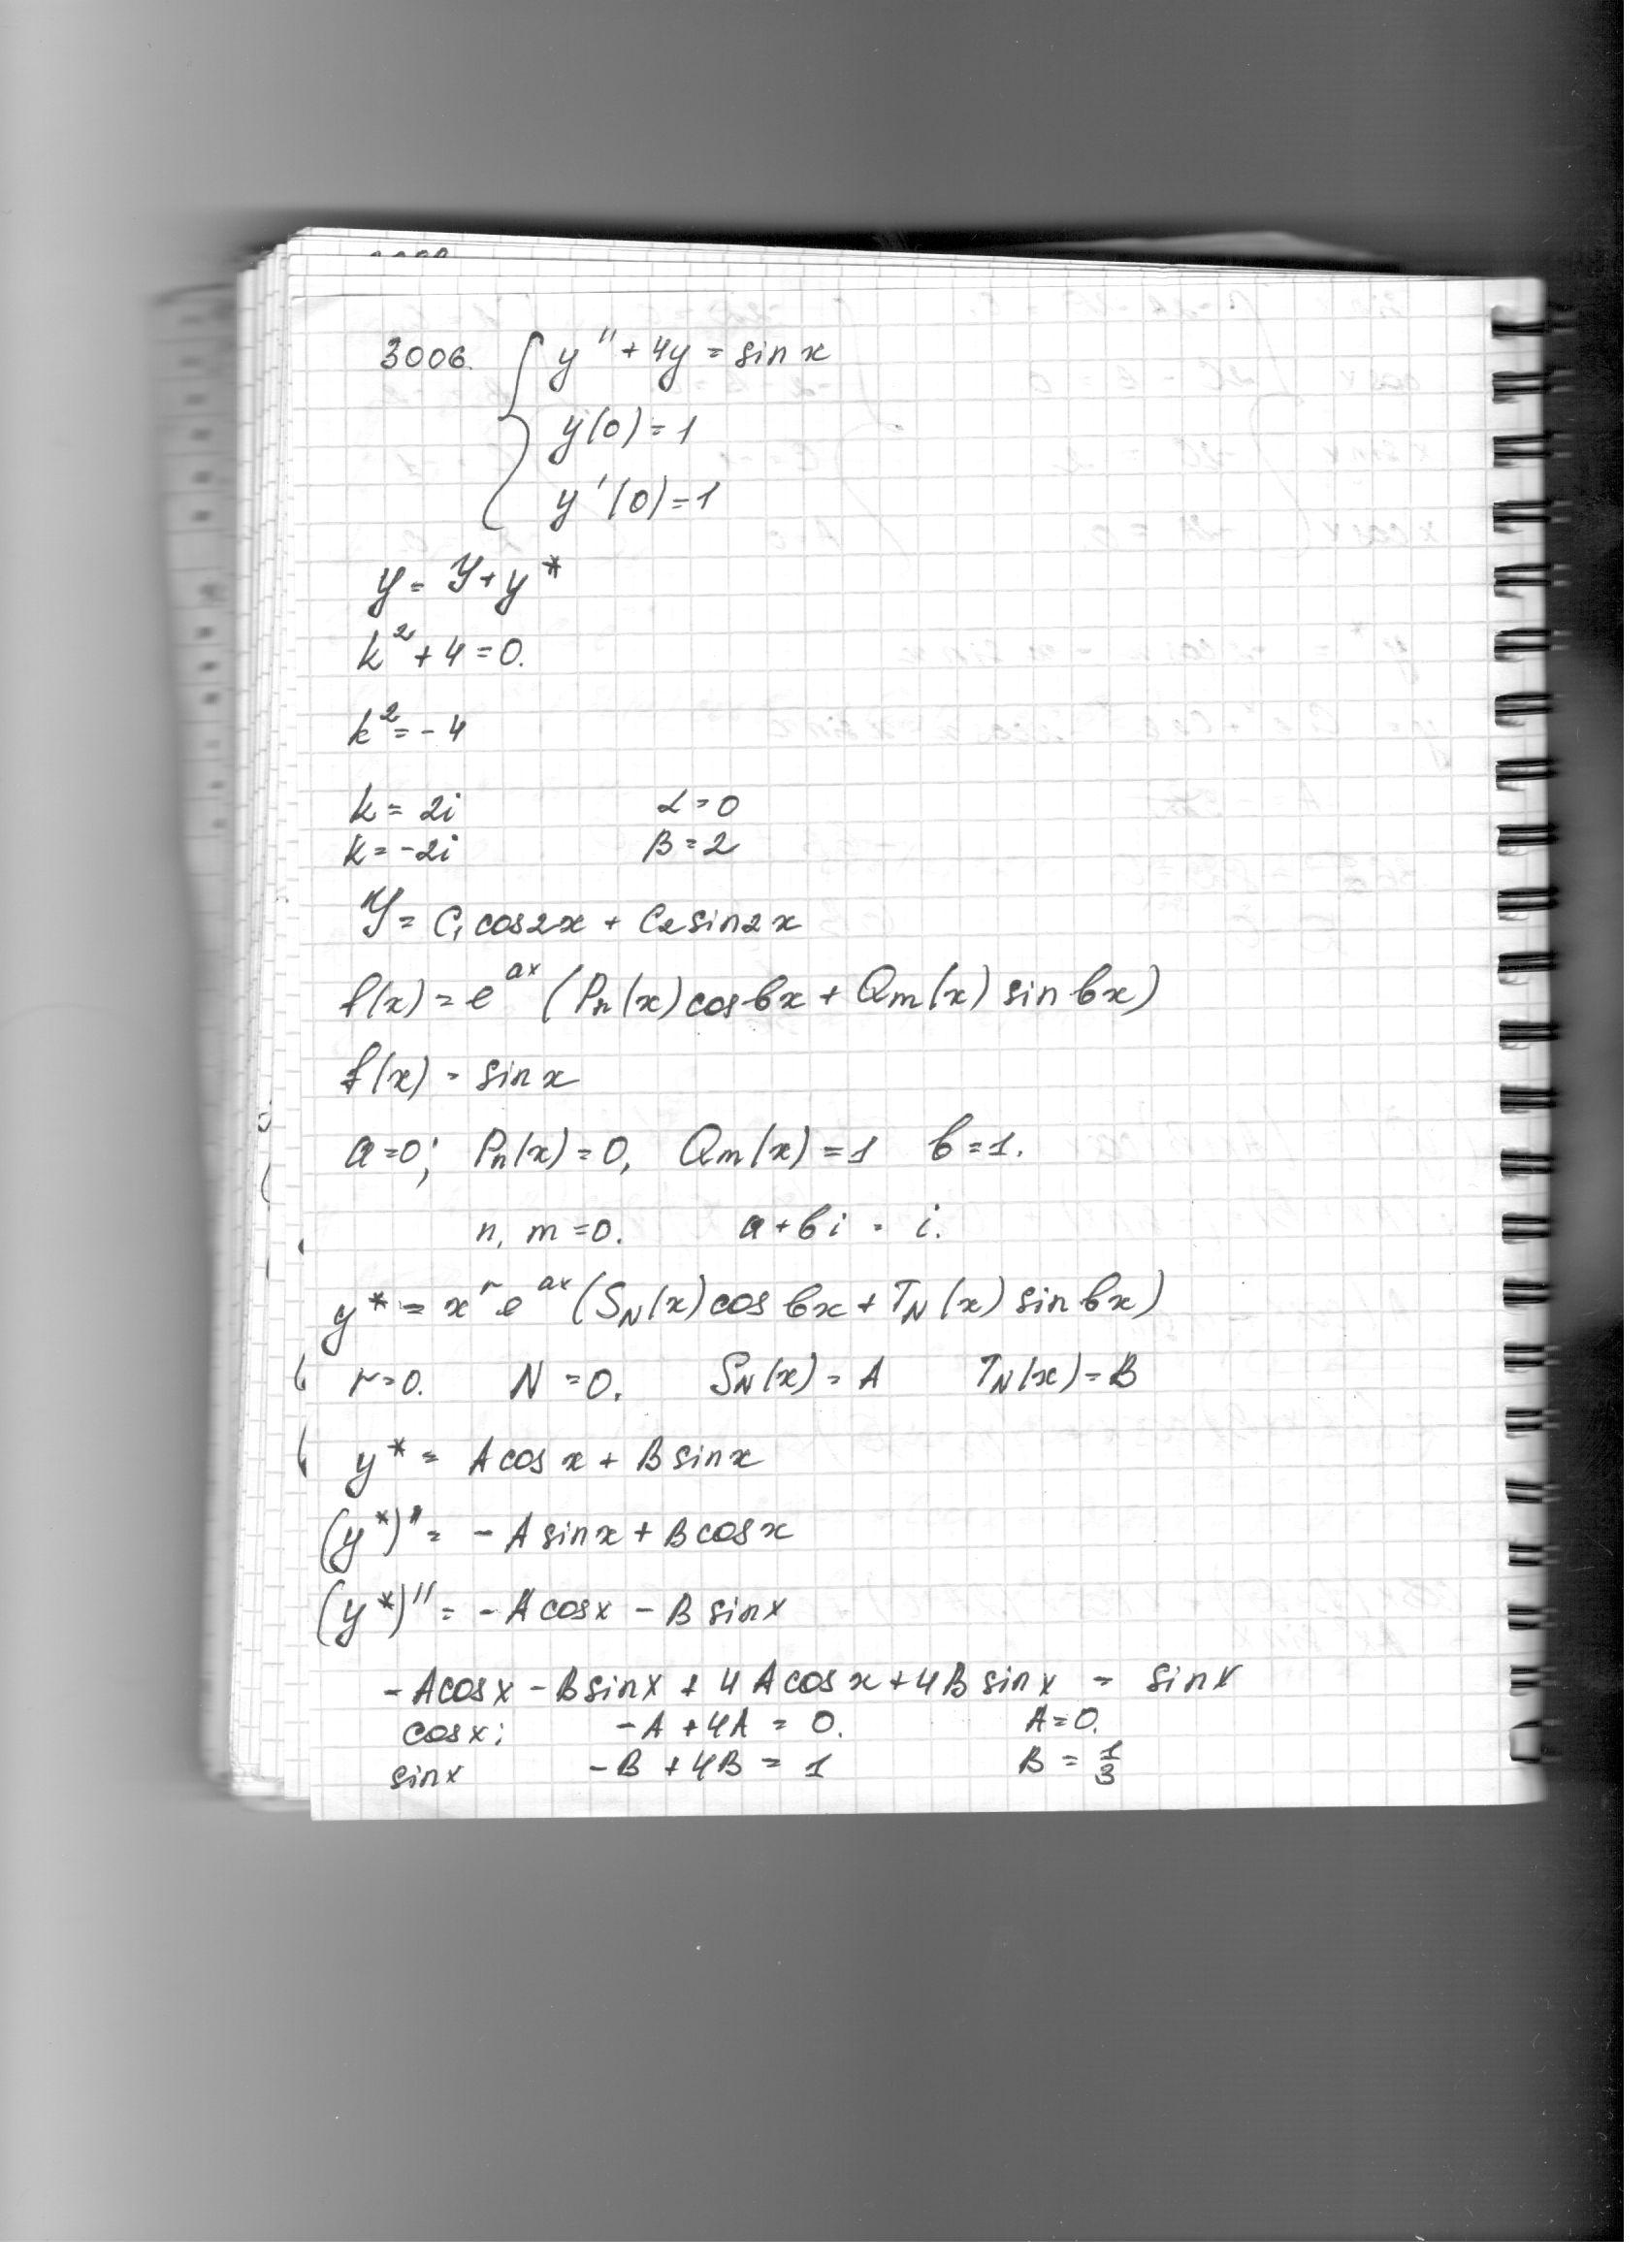 3006. { y'' + 4y = sin x
y(0) = 1
y'(0) = 1
y = Y + y*
k² + 4 = 0.
k² = -4
k = 2i α = 0
k = -2i β = 2
Y = C₁ cos2x + C₂ sin2x
f(x) = e^{ax} (Pn(x) cos bx + Qm(x) sin bx)
f(x) = sin x
a = 0; Pn(x) = 0, Qm(x) = 1 b = 1.
n, m = 0. a + bi = i.
y* = x^r e^{ax} (S_N(x) cos bx + T_N(x) sin bx)
r = 0. N = 0. S_N(x) = A T_N(x) = B
y* = A cos x + B sin x
(y*)' = - A sin x + B cos x
(y*)'' = - A cos x - B sin x
- A cos x - B sin x + 4 A cos x + 4 B sin x = sin x
cos x: - A + 4A = 0. A = 0.
sin x - B + 4B = 1 B = 1/3